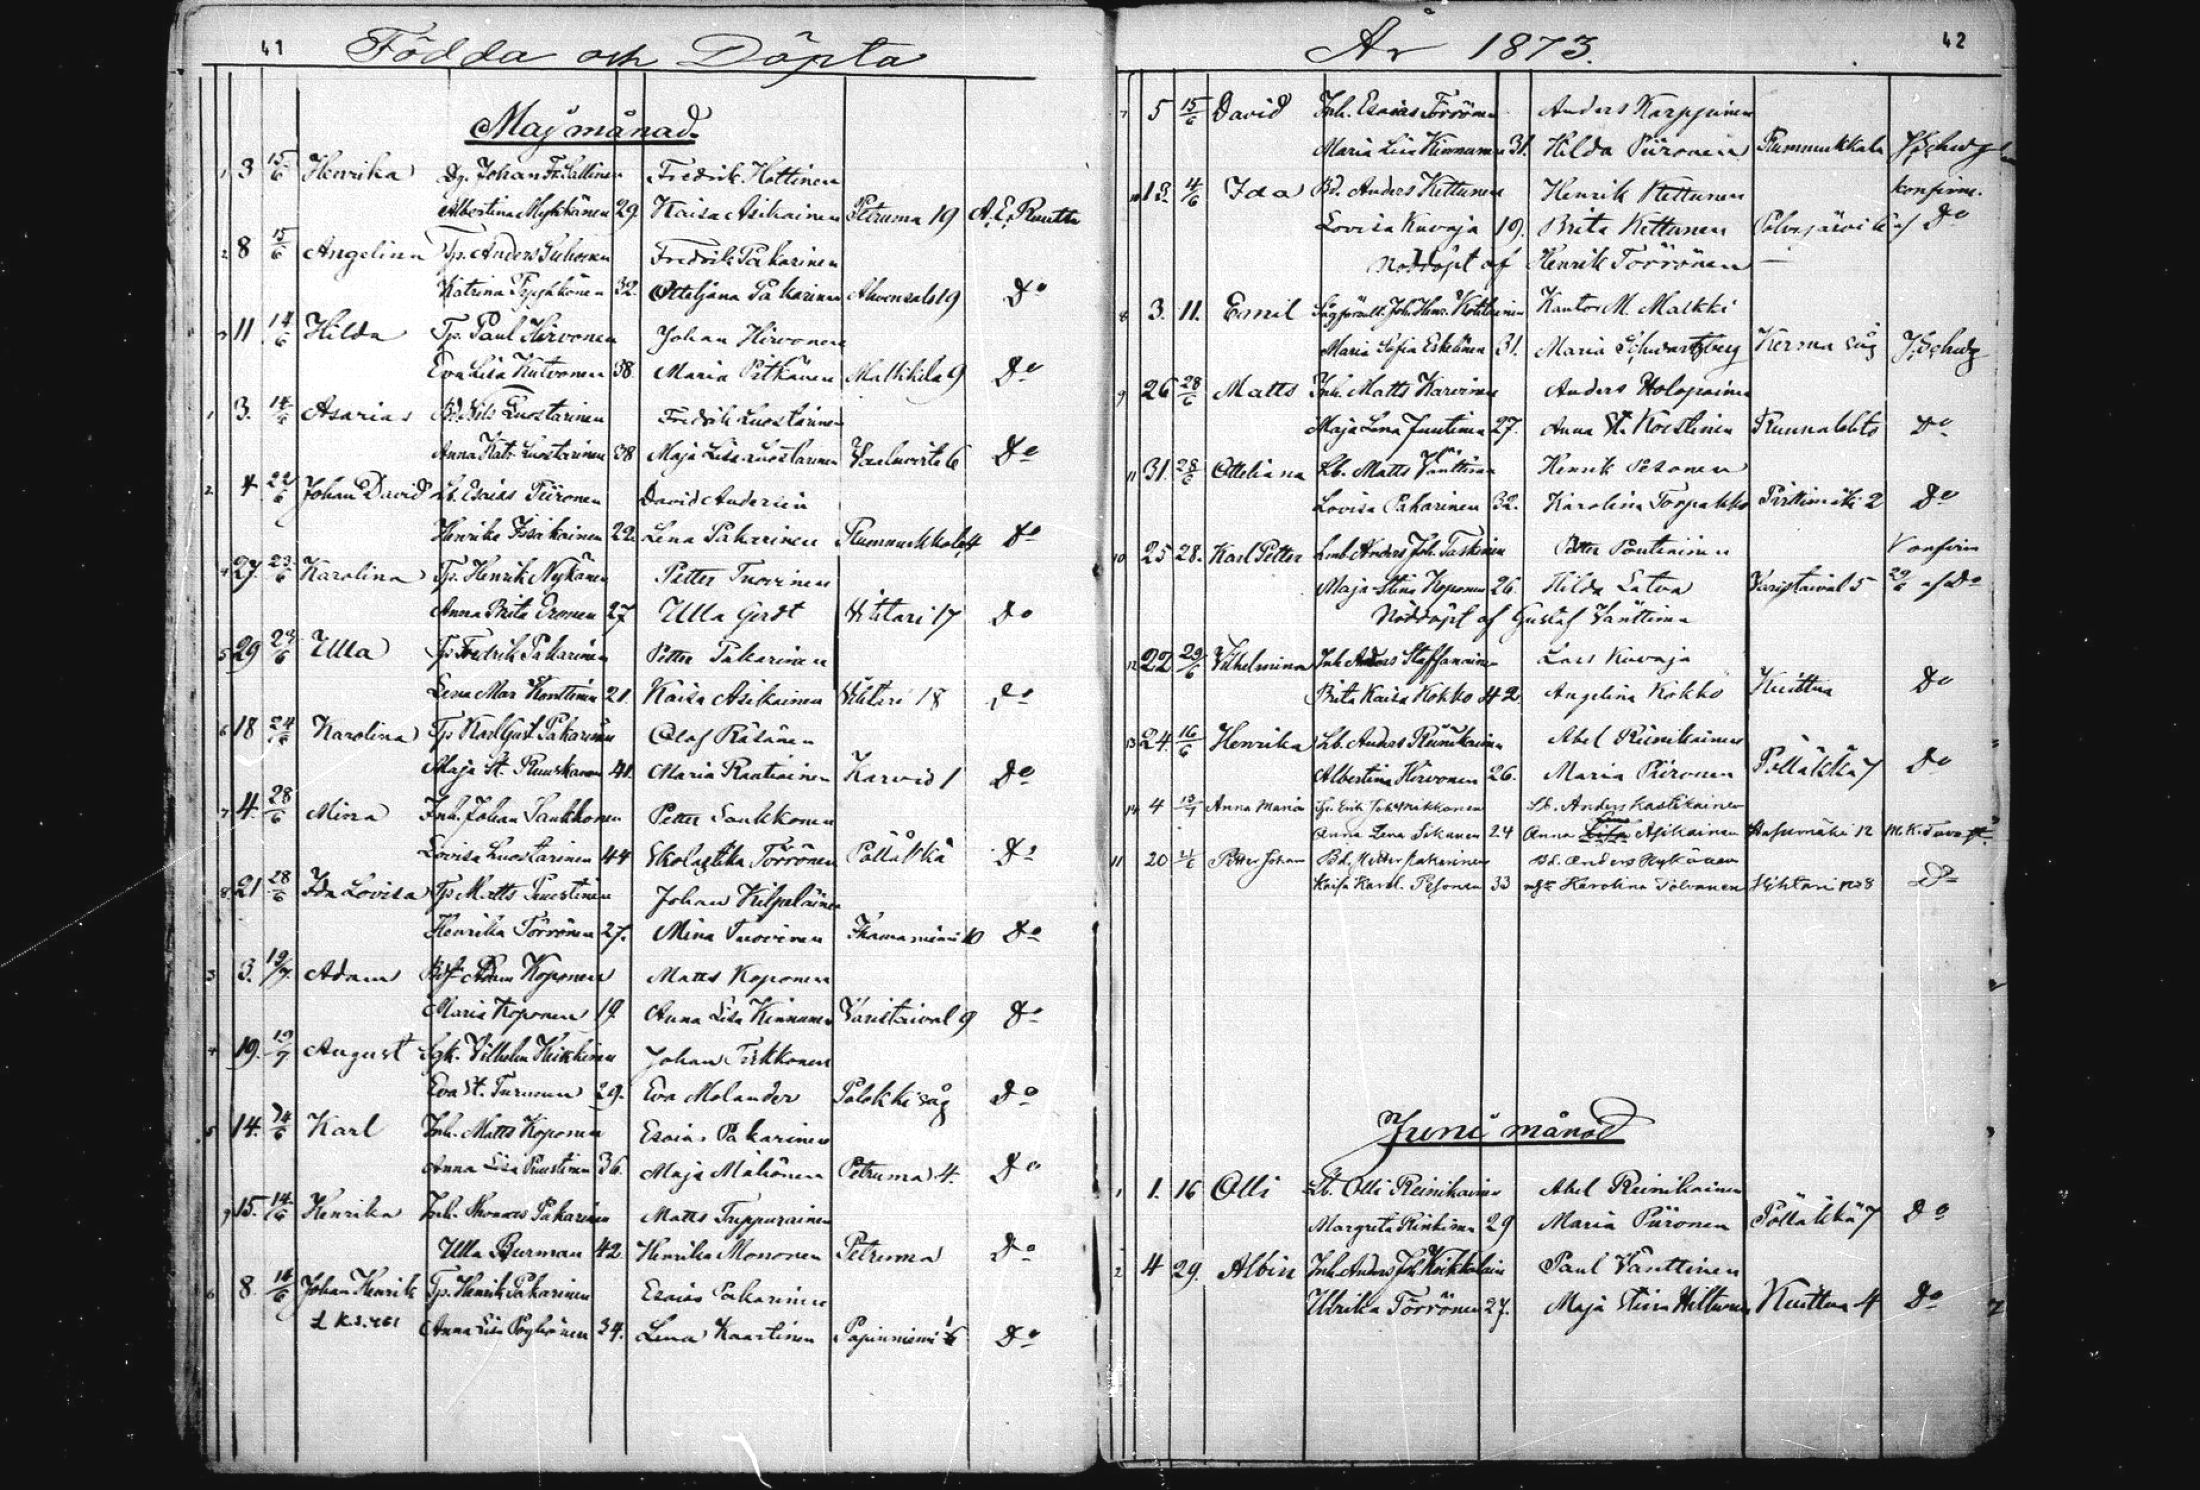 41
Födda och Döpta
Maj månad.
1 3 15/6 Henrika Dg. Johan Fr. Sallinen Fredrik Hottinen
Albertina Mykkänen 29. Kaisa Asikainen Petruma 19 A. E. Ruuth
2 8 15/6 Angelina Tp. Anders Fredrik Pakarinen
Katrina 32. Otteljana Pakarinen 19 Do
3 11 14/6 Hilda Tp. Paul Hirvonen Johan Hirvonen
Eva Lisa Kutvonen 38. Maria Pitkänen Malkkila 9 Do
1 3. 14/6 Asarias Bd. Nils Luostarinen Fredrik Luostarinen
Anna Kat. Luostarinen 38 Maja Lisa Luostarinen 6 Do
2 4 22/6 Johan David Lb. Esaias Piironen David Andersin
Henrika Issakainen 22 Lena Pakarinen Rummukkala 4 Do
4 27. 23/6 Karolina Tp. Henrik Nykänen Petter Tuovinen
Anna Brita Eronen 27 Ulla Gerdt Vihtari 17 Do
5 29 23/6 Ulla Tp. Fredrik Pakarinen Petter Pakarinen
Lena Mar. Konttinen 21. Kaisa Asikainen Vihtari 18 Do
6 18 24/6 Karolina Tp Karl Gust. Pakarinen Olof Räsänen
Maja St. Ruuskanen 41. Maria Rautiainen Karvio 1 Do
7 4. 28/6 Mina Inh. Johan Saukkonen Petter Saukkonen
Lovisa Luostarinen 44 Skolastika Törrönen Pölläkkä Do
8 21 28/6 Ida Lovisa Tp Matts Puustinen Johan Kilpeläinen
Henrika Törrönen 27. Mina Tuovinen 10 Do
3 3. 19/7. Adam Bdsn Adam Koponen Matts Koponen
Maria Koponen 19. Anna Lisa Kinnunen Varistaival 9 Do
4 19. 19/7 August Sgk. Vilhelm Heikkinen Johan Tirkkonen
Eva St. Turunen 29. Eva Molander Palokki såg Do
5 14. 14/6 Karl Inh. Matts Koponen Esaias Pakarinen
Anna Lisa Puustinen 36. Maja Mähönen Petruma 4. Do
9 15. 14/6 Henrika Inh. Thomas Pakarinen Matts Trippurainen
Ulla Burman 42 Henrika Mononen Petruma Do
6 8. 14/6 Johan Henrik Tp. Henrik Pakarinen Esaias Pakarinen
Anna Lisa Pöyhönen 34. Lena Kaartinen Papinniemi 6 Do
År 1873.
42
7 5 15/6 David Inh. Esaias Törrönen Anders Karppinen
Maria Lisa Kinnunen 31. Hilda Piironen Rummukkala J. Schvzg
10 13 4/6 Ida Bd. Anders Kettunen Henrik Kettunen konfirm.
Lovisa Kuvaja 19. Brita Kettunen Polvijärvi 6 af Do
Nöddöpt af Henrik Törrönen
8 3. 11. Emil Sågförvalt. Joh. Henr. Kantor M. Malkki
Maria Sofia Eskelinen 31. Maria Schvartzberg Kerma såg J. Schvzg
9 26 28/6 Matts Inh. Matts Karvinen Anders Holopainen
Maja Lena Juutinen 27. Anna St. Kostinen Kunnalehto Do
11 31. 28/6 Otteliana Lb. Matts Vänttinen Henrik Pesonen
Lovisa Pakarinen 32. Karolina Torpakko Pirttimäki 2 Do
10 25 28. Karl Petter Lmb. Anders Joh. Taskinen Petter Pontinen Konfirm
Maja Stina Koponen 26. Hilda Latva Varistaival 5 29/6 af Do
Nöddöpt af Gustaf Vänttinen
12 22 29/6 Vilhelmina Inh Anders Staffanainen Lars Kuvaja
Brita Kaisa Kokko 42 Angelina Kokko Kuittua Do
13 24. 16/6 Henrika Lb. Anders Reinikainen Abel Reinikainen
Albertina Hirvonen 26. Maria Piironen Pölläkkä 7 Do
14 4 13/7 Anna Maria Tp. Erik Joh. Mikkonen Lb. Anders Kastikainen
Anna Lena Sikanen 24 Anna Lisa Asikainen 12
11 20 Petter Johan Bd. Petter Pakarinen Bd. Anders Nykänen
Kaisa Karol. Pesonen 33 Karolina Tolvanen Vihtari No 8 Do
Juni månad
1 1. 16 Olli Lb. Olli Reinikainen Abel Reinikainen
Margreta Rinkinen 29 Maria Piironen Pölläkkä 7 Do
2 4 29. Albin Inh. Anders Joh. Paul Vänttinen
Ulrika Törrönen 27. Maja Stina Hiltunen Kuittua 4 Do